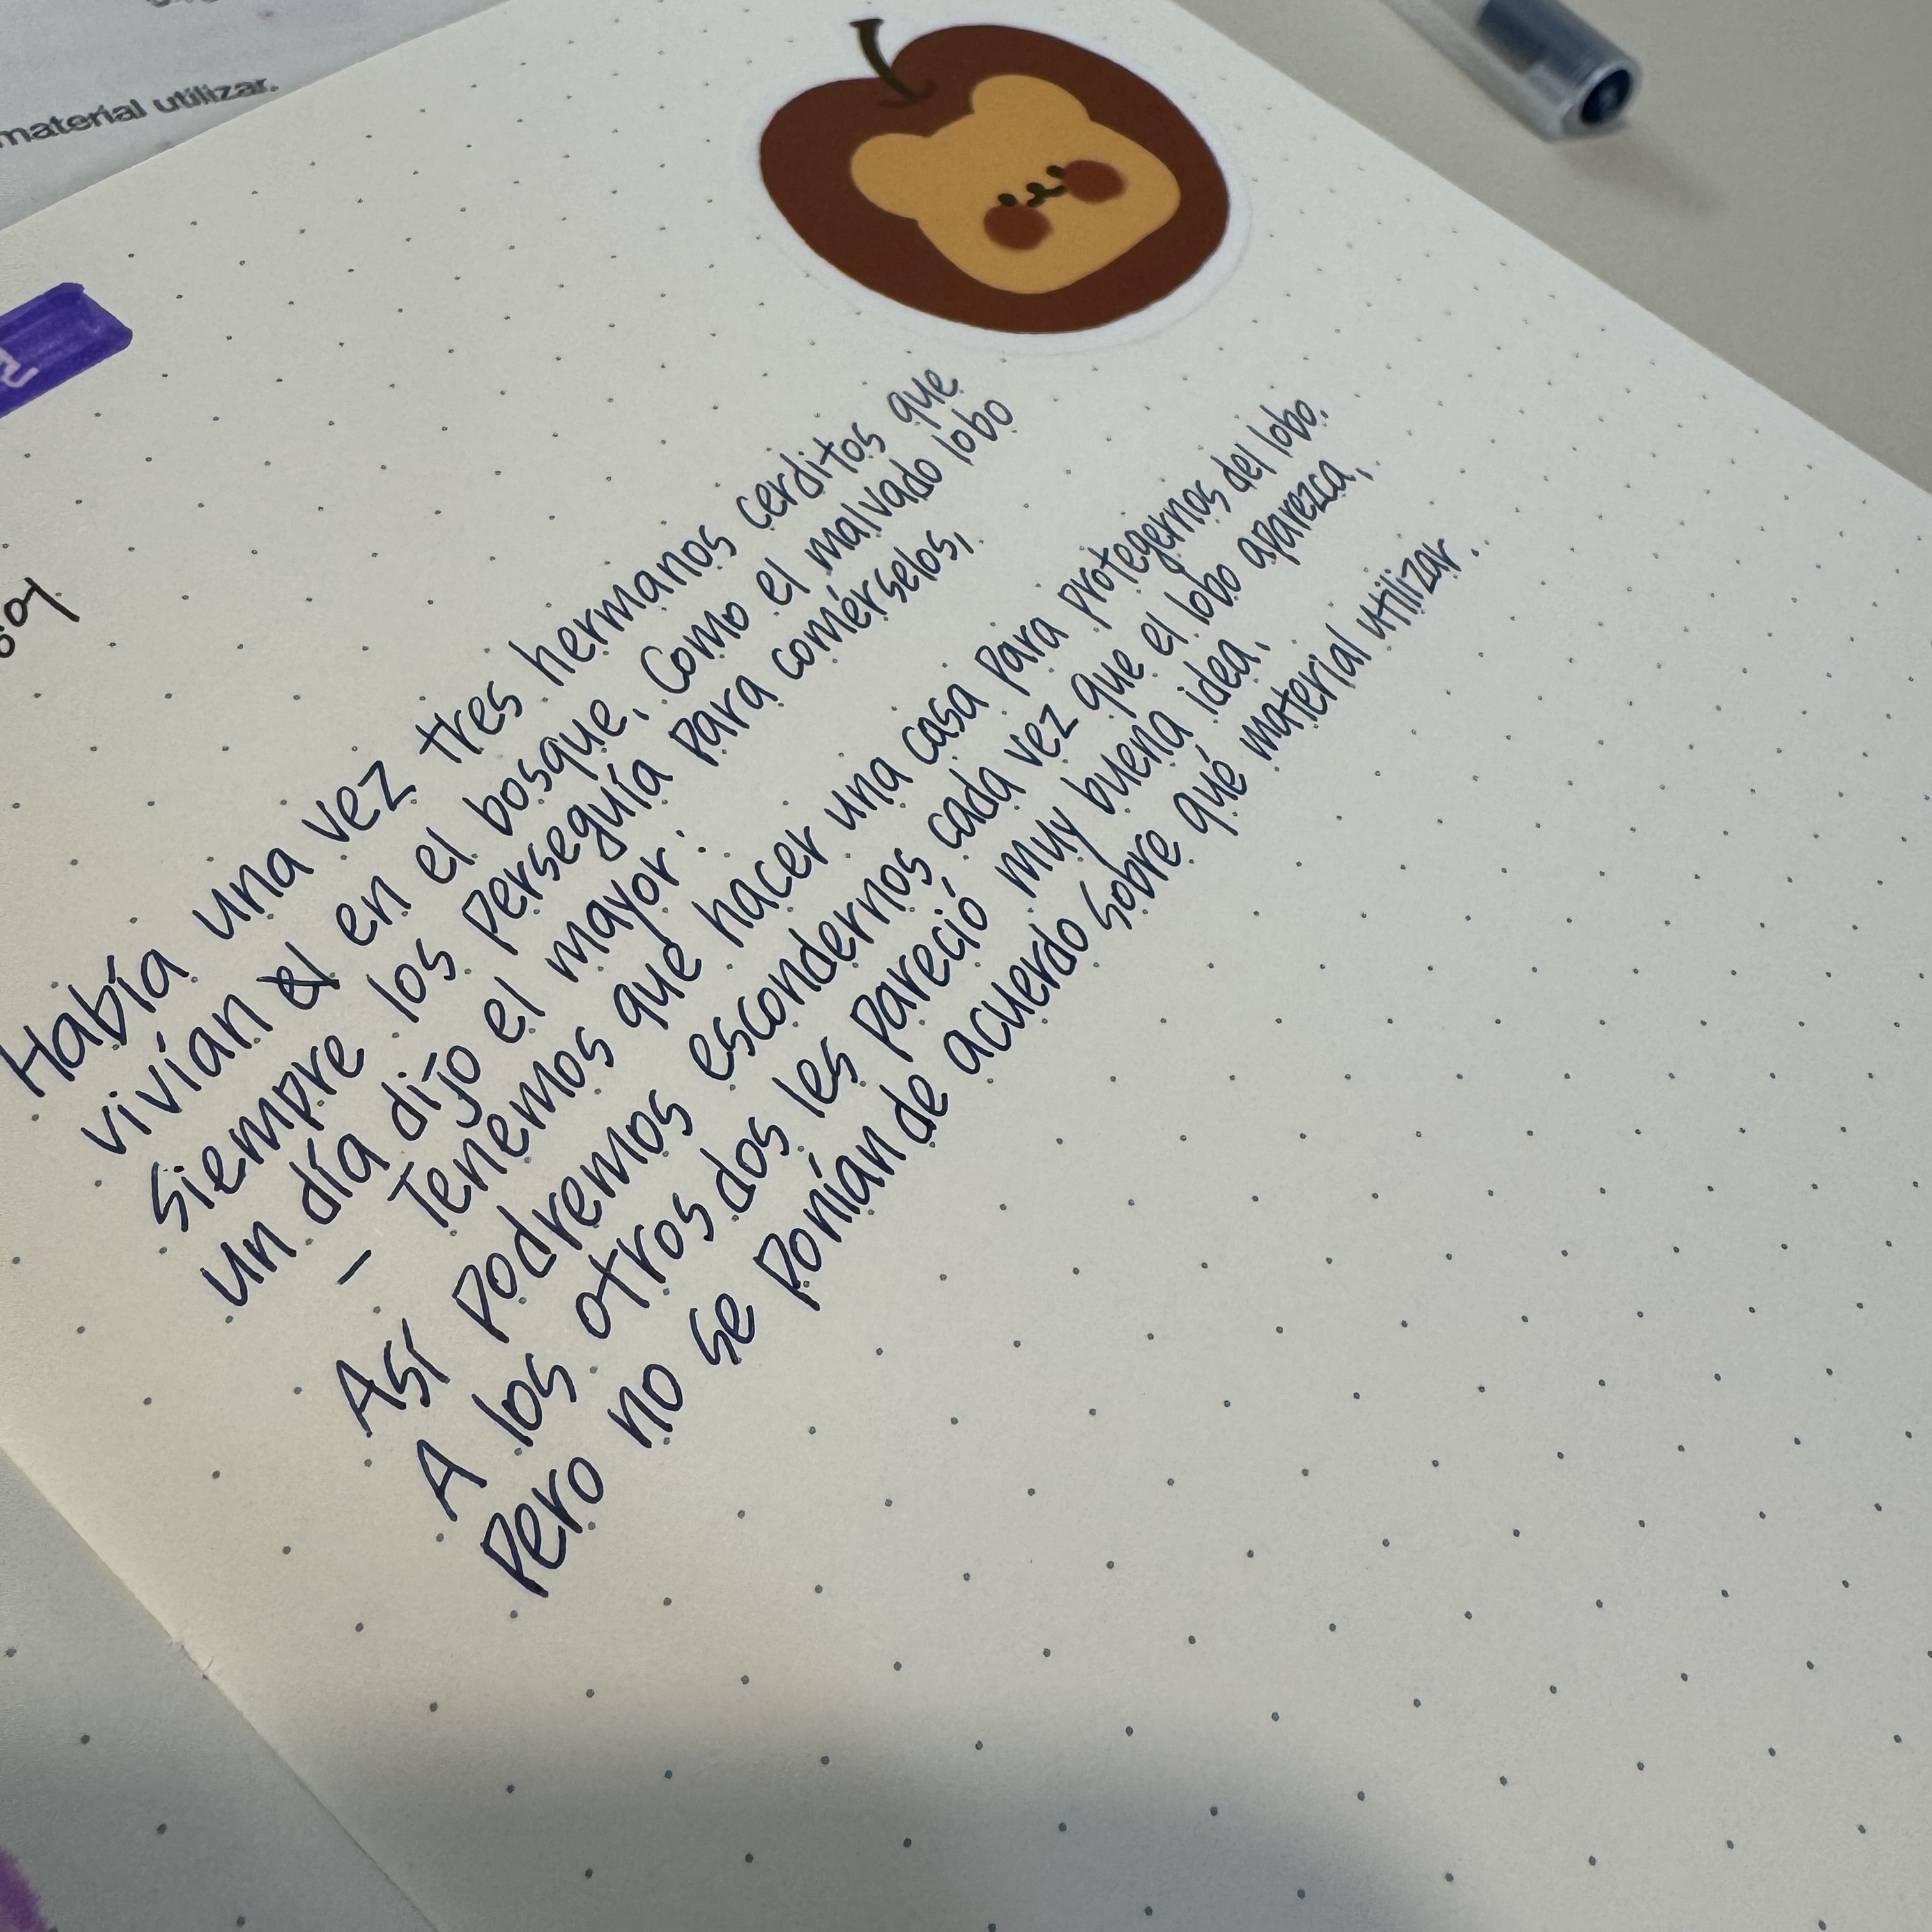 material utilizar.
Había una vez tres hermanos cerditos que
vivían el en el bosque. Como el malvado lobo
siempre los perseguía para comérselos,
un día dijo el mayor:
- Tenemos que hacer una casa para protegernos del lobo.
Así podremos escondernos cada vez que el lobo aparezca,
A los otros dos les pareció muy buena idea,
Pero no se ponían de acuerdo sobre qué material utilizar.